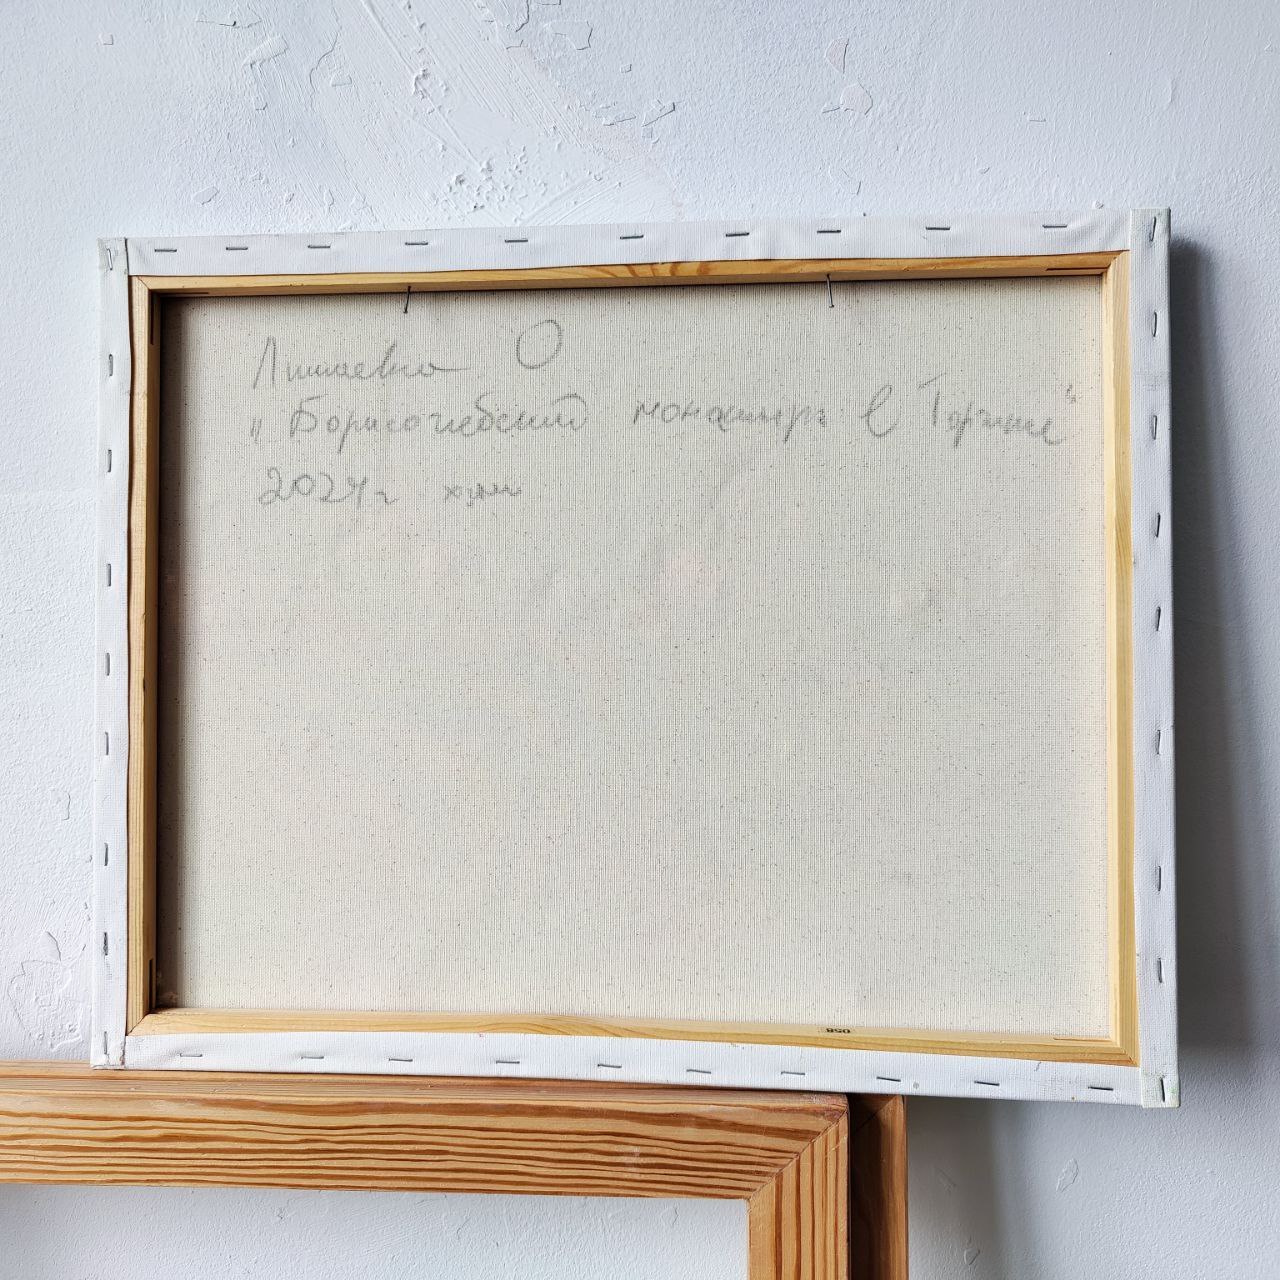 О
„Борисоглебский монастырь в Торжке“
2024г х.,м
058